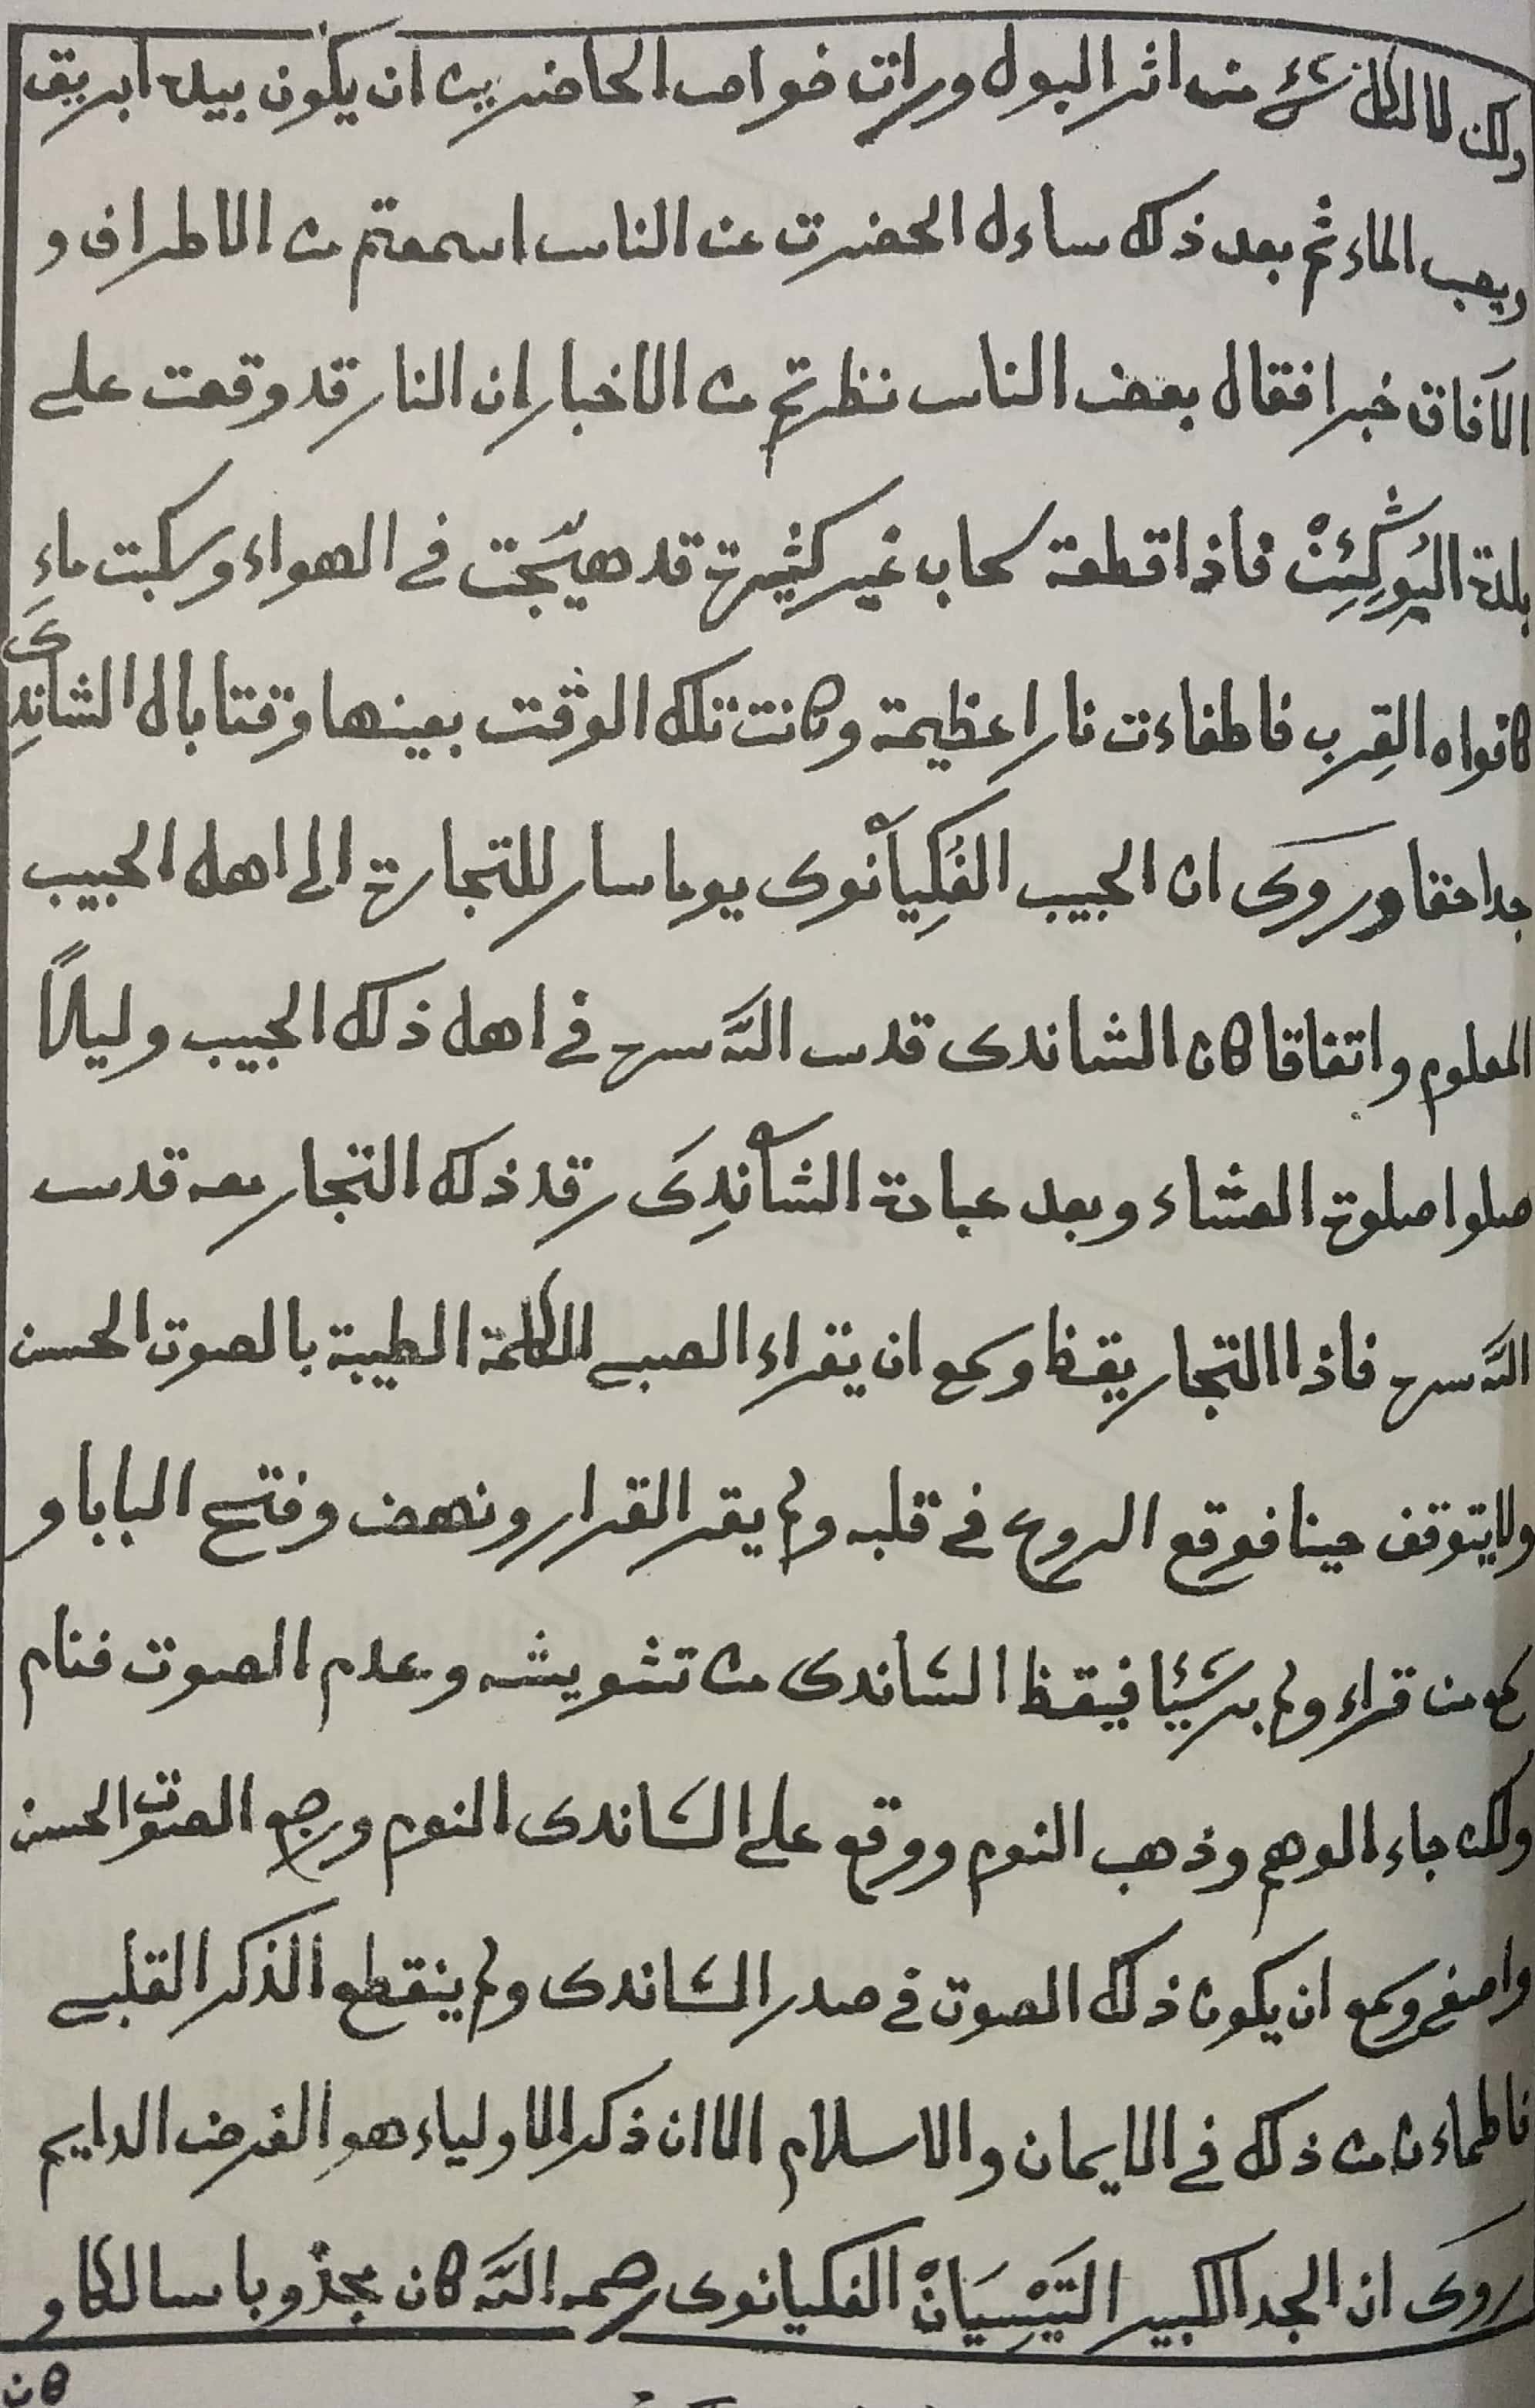 ولكن لا لنا كل شئ من اثر البول ورات خواص الحاضرين ان يكون بيده ابريق
ويصب الماء ثم بعد ذلك ساءل الحضرت عن الناس اسمعتم من الاطراف و
الآفاق خبرا فقال بعض الناس نظرتم من الاخبار ان النار قد وقعت على
بلدة البُورْكِئِنْ فاذا قطعة سحاب غير كثيرة قد هيّجت في الهواء وسكبت ماءِ
كافواه القِرب فاطفاءت نارا عظيمة وكانت تلك الوقت بعينها وقتا بال الشاندِىَ
جدا حقا وروىَ ان الحبيب الفَكِيانُوى يوما سار للتجارة الى اهل الحبيب
المعلوم واتفاقا كان الشاندى قدس اللّه سره في اهل ذلك الحبيب وليلاً
صلوا صلوة العشاء وبعد عبادة الشانْدِىَ رقد ذلك التجار معه قدس
اللّه سره فاذا التجار يقظ وسمع ان يقراء الصبى الكلمة الطيبة بالصوت الحسن
ولايتوقف حينا فوقع الروع في قلبه ولم يقر القرار ونهض وفتح البابا و
سمع من قراء ولم ير شيئا فيقظ الشاندى من تشويشه وعدم الصوت فنام
ولكن جاء الوهم وذهب النوم ووقع على الشاندى النوم ورجع الصوت الحسن
واصغى وسمع ان يكون ذلك الصوت في صدر الشاندى ولم ينقطع الذكر القلبى
فاطماءن من ذلك في الايمان والاسلام الا ان ذكر الاولياء هو الفرض الدايم
روىَ ان الجد الكبير التَيْسِيَانْ الفكيانوى رحمه اللّه كان مجذوبا سالكا و
كان